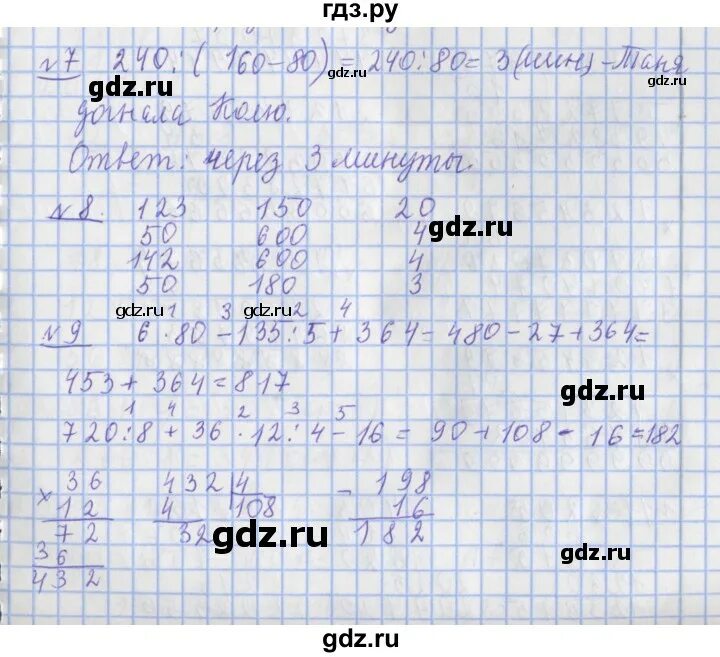 гдз.ру
№7 240:(160-80)=240:80=3(мин)-Таня
gdz.ru
gdz.ru
догнала Колю.
Ответ: через 3 минуты.
№8. 123 150 20
50 600 4
gdz.ru
142 600 4
50 180 3
gdz.ru gdz.ru
1 3 2 4
№9 6·80-135:5+364=480-27+364=
453+364=817
gdz.ru
1 4 2 3 5
720:8+36·12:4-16=90+108-16=182
36 432 4 - 198
× 12 4 108 16
72 32 182
gdz.ru
36
432
gdz.ru
gdz.ru